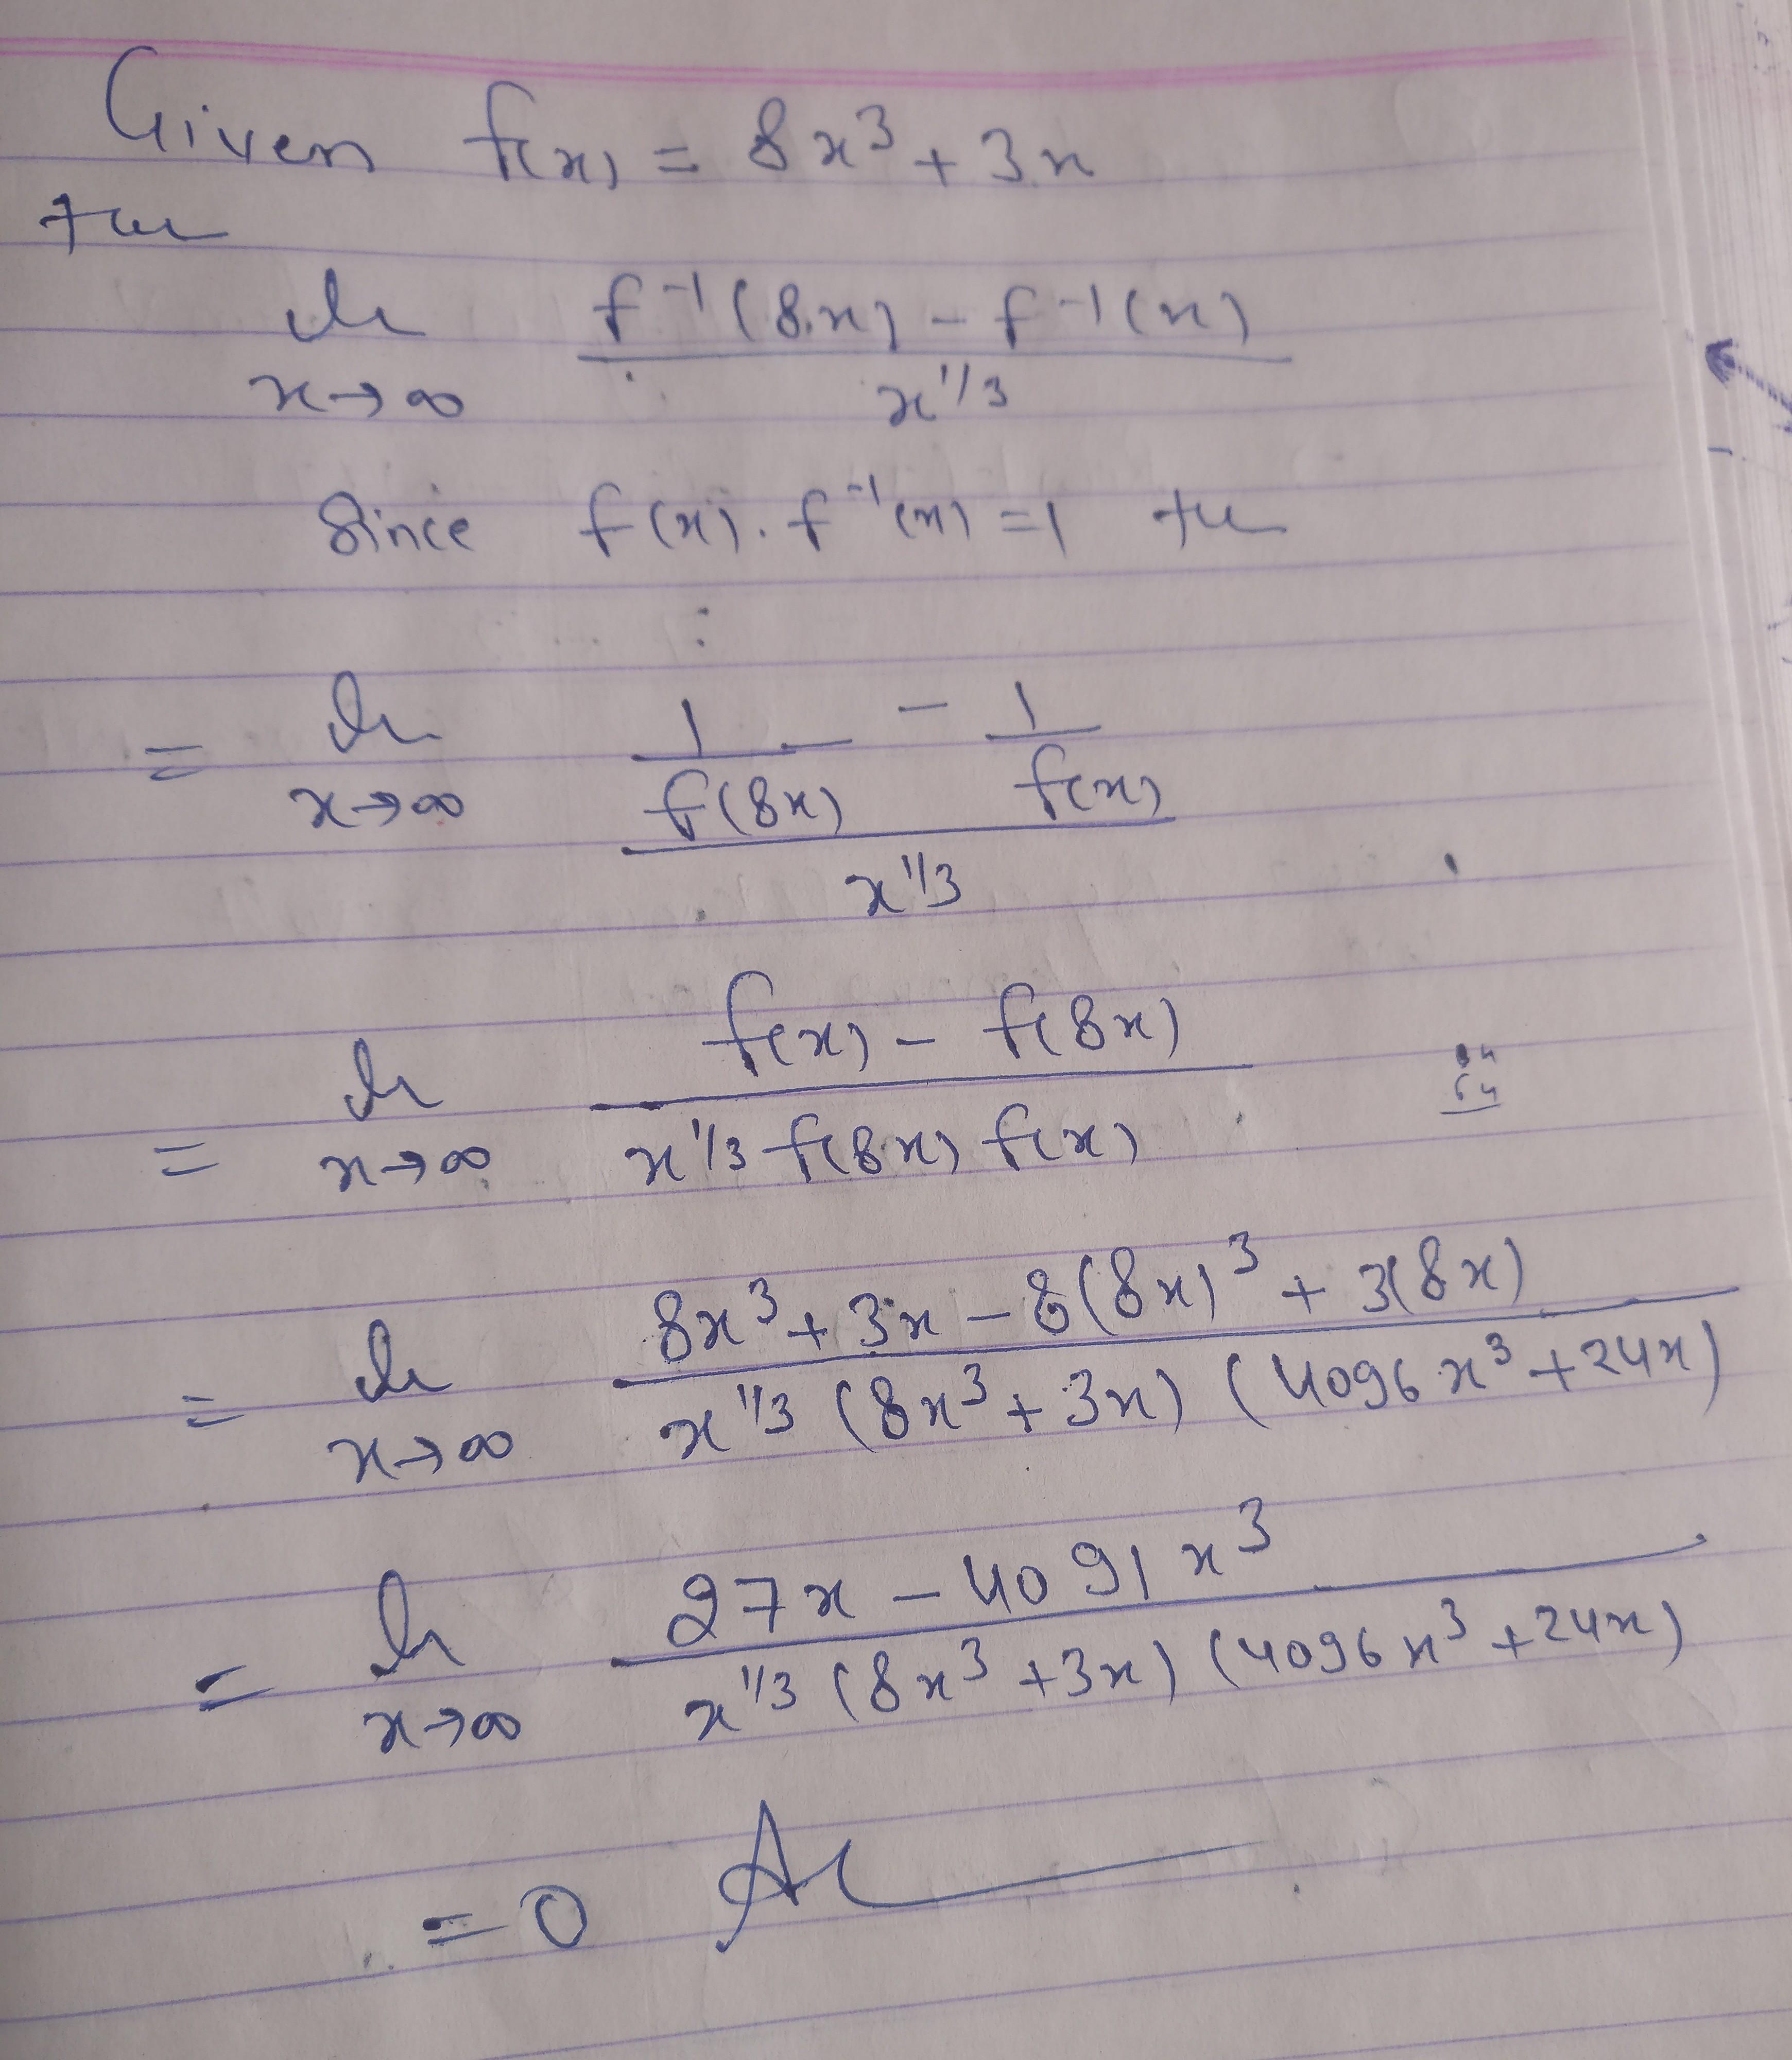 Given f(x) = 8x³ + 3x
the
lim x→∞ (f⁻¹(8x) - f⁻¹(x)) / x^1/3
Since f(x) . f⁻¹(x) = 1 the
= lim x→∞ (1/f(8x) - 1/f(x)) / x^1/3
= lim x→∞ (f(x) - f(8x)) / (x^1/3 f(8x) f(x))
= lim x→∞ (8x³ + 3x - 8(8x)³ + 3(8x)) / (x^1/3 (8x³ + 3x) (4096x³ + 24x))
= lim x→∞ (27x - 4091x³) / (x^1/3 (8x³ + 3x) (4096x³ + 24x))
= 0